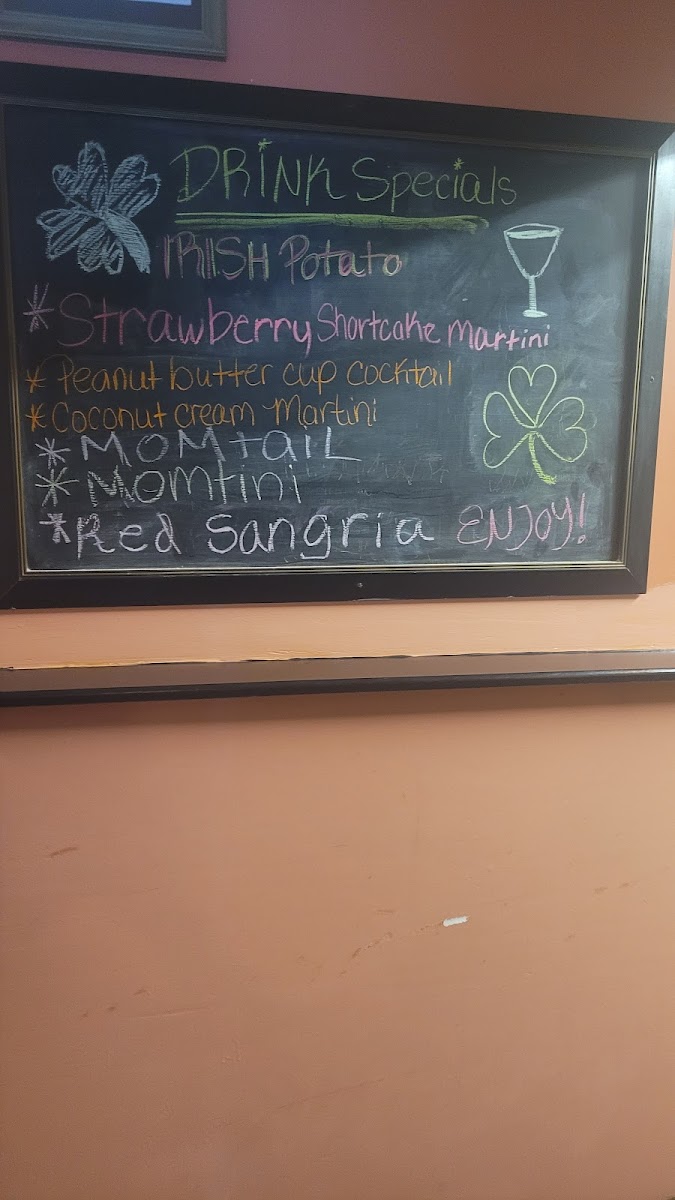 DRINK Specials
IRISH Potato
*Strawberry Shortcake Martini
*Peanut butter cup cocktail
*Coconut cream Martini
*MOMtaiL
*MOMtini
*Red Sangria ENJOY!